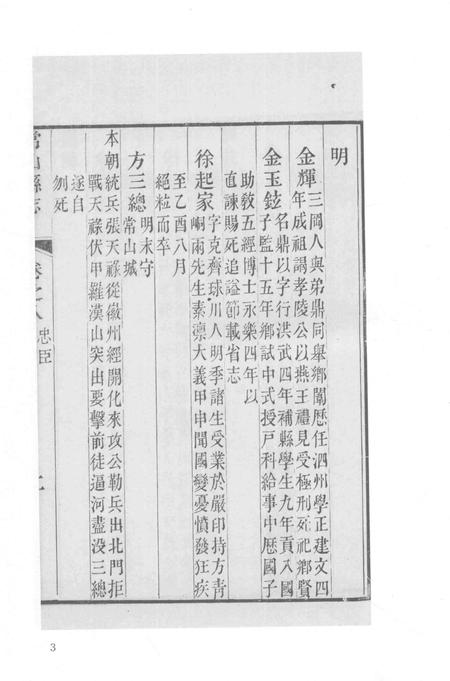 明
金輝三岡人與弟鼎同舉鄉闈歷任泗州學正建文四
年成祖謁孝陵公以燕王禮見受極刑死祀鄉賢
金玉鉉名鼎以字行洪武四年補縣學生九年貢入國
子監十五年鄉試中式授戸科給事中歷國子
助敎五經博士永樂四年以
直諫賜死追謚節載省志
徐起家字克齊球川人明季諸生受業於嚴印持方靑
峒兩先生素凛大義甲申聞國變憂憤發狂疾
至乙酉八月
絕粒而卒
方三總明末守
常山城
本朝統兵張天祿從徽州經開化來攻公勒兵出北門拒
戰天祿伏甲羅漢山突出要擊前徒逼河盡没三總
遂自
刎死
常山縣志
卷之八
忠臣
3